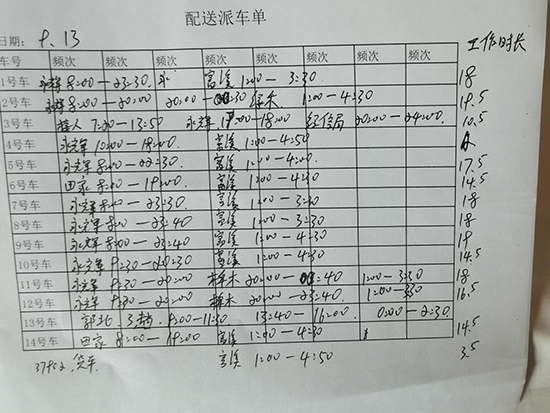 配送派车单
日期: 9.13 工作时长
车号 频次 频次 频次 频次 频次 频次 频次
1号车 永辉 8:00—23:30. 富溪 1:00—3:30 18
2号车 永辉 8:00—20:00 20:00— 1:00—4:30 19.5
3号车 接人 7:20—13:50 永辉 —18:00 经信局 20:00—24:00 10.5
4号车 永辉 10:00—18:00 富溪 1:00—4:50
5号车 永辉 8:00—22:30 富溪 1:00—4:00 17.5
6号车 田家 8:00—19:00 富溪 1:00—4:30 14.5
7号车 永辉 8:00—23:30 富溪 1:00—3:30 18
8号车 永辉 8:00—23:40 富溪 1:00—3:30 18
9号车 永辉 8:00—23:40 富溪 1:00—4:30 19
10号车 永辉 9:30—20:30 富溪 1:00—4:30 14.5
11号车 永辉 9:30—20:00 樟木 20:00— 1:00—3:30 18
12号车 永辉 9:30—20:00 樟木 20:00—23:40 1:00—3:30 16.5
13号车 郭北 3趟 9:00—11:30 13:40—16:00 0:00—2:30
14号车 田家 8:00—19:00 富溪 1:00—4:30 14.5
货车 富溪 1:00—4:50 3.5